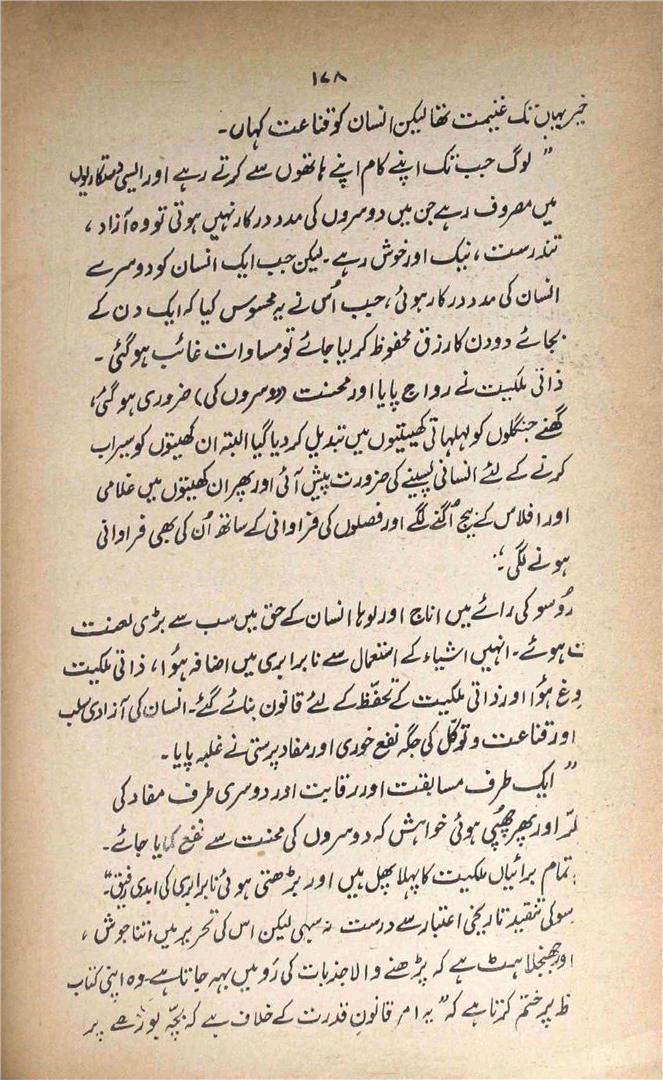 ۱۶۸
خیر یہاں تک غنیمت تھا لیکن انسان کو قناعت کہاں۔
”لوگ جب تک اپنے کام اپنے ہاتھوں سے کرتے رہے اور ایسی دستکاریوں
میں مصروف رہے جن میں دوسروں کی مدد درکار نہیں ہوتی تو وہ آزاد،
تندرست، نیک اور خوش رہے۔ لیکن جب ایک انسان کو دوسرے
انسان کی مدد درکار ہوئی، جب اُس نے یہ محسوس کیا کہ ایک دن کے
بجائے دو دن کا رزق محفوظ کر لیا جائے تو مساوات غائب ہو گئی۔
ذاتی ملکیت نے رواج پایا اور محنت (دوسروں کی) ضروری ہو گئی،
گھنے جنگلوں کو لہلہاتی کھیتیوں میں تبدیل کر دیا گیا البتہ ان کھیتوں کو سیراب
کرنے کے لئے انسانی پسینے کی ضرورت پیش آئی اور پھر ان کھیتوں میں غلامی
اور افلاس کے بیج اُگنے لگے اور فصلوں کی فراوانی کے ساتھ اُن کی بھی فراوانی
ہونے لگی“۔
رُوسو کی رائے میں اناج اور لوہا انسان کے حق میں سب سے بڑی لعنت
ت ہوئے۔ انہیں اشیاء کے استعمال سے نابرابری میں اضافہ ہؤا، ذاتی ملکیت
وغ ہؤا اور ذاتی ملکیت کے تحفّظ کے لئے قانون بنائے گئے۔ انسان کی آزادی سلب
اور قناعت و توکّل کی جگہ نفع خوری اور مفاد پرستی نے غلبہ پایا۔
”ایک طرف مسابقت اور رقابت اور دوسری طرف مفاد کی
ـرّ اور پھر چھپی ہوئی خواہش کہ دوسروں کی محنت سے نفع کمایا جائے۔
تمام برائیاں ملکیت کا پہلا پھل ہیں اور بڑھتی ہوئی نابرابری کی ابدی رفیق“۔
سو کی تنقید تاریخی اعتبار سے درست نہ سہی لیکن اس کی تحریر میں اتنا جوش،
اور جھنجلاہٹ ہے کہ پڑھنے والا جذبات کی رَو میں بہہ جاتا ہے۔ وہ اپنی کتاب
ظ پر ختم کرتا ہے کہ ”یہ امر قانونِ قدرت کے خلاف ہے کہ بچّہ بوڑھے پر